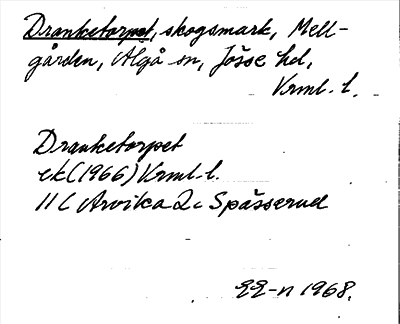 Dranketorpet, skogsmark, Mell-
gården, Älgå sn, Jösse hd,
Vrml. l.
Dranketorpet
ek (1966) Vrml. l.
11 C Arvika 2 c Spässerud
1968.